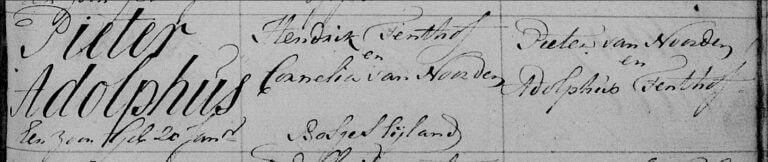 Pieter
Adolphus
Een zoon Geb 20 Janr
Hendrick Tenthof
en
Cornelia van Noorden
Pieter van Noorden
en
Adolphus Tenthof